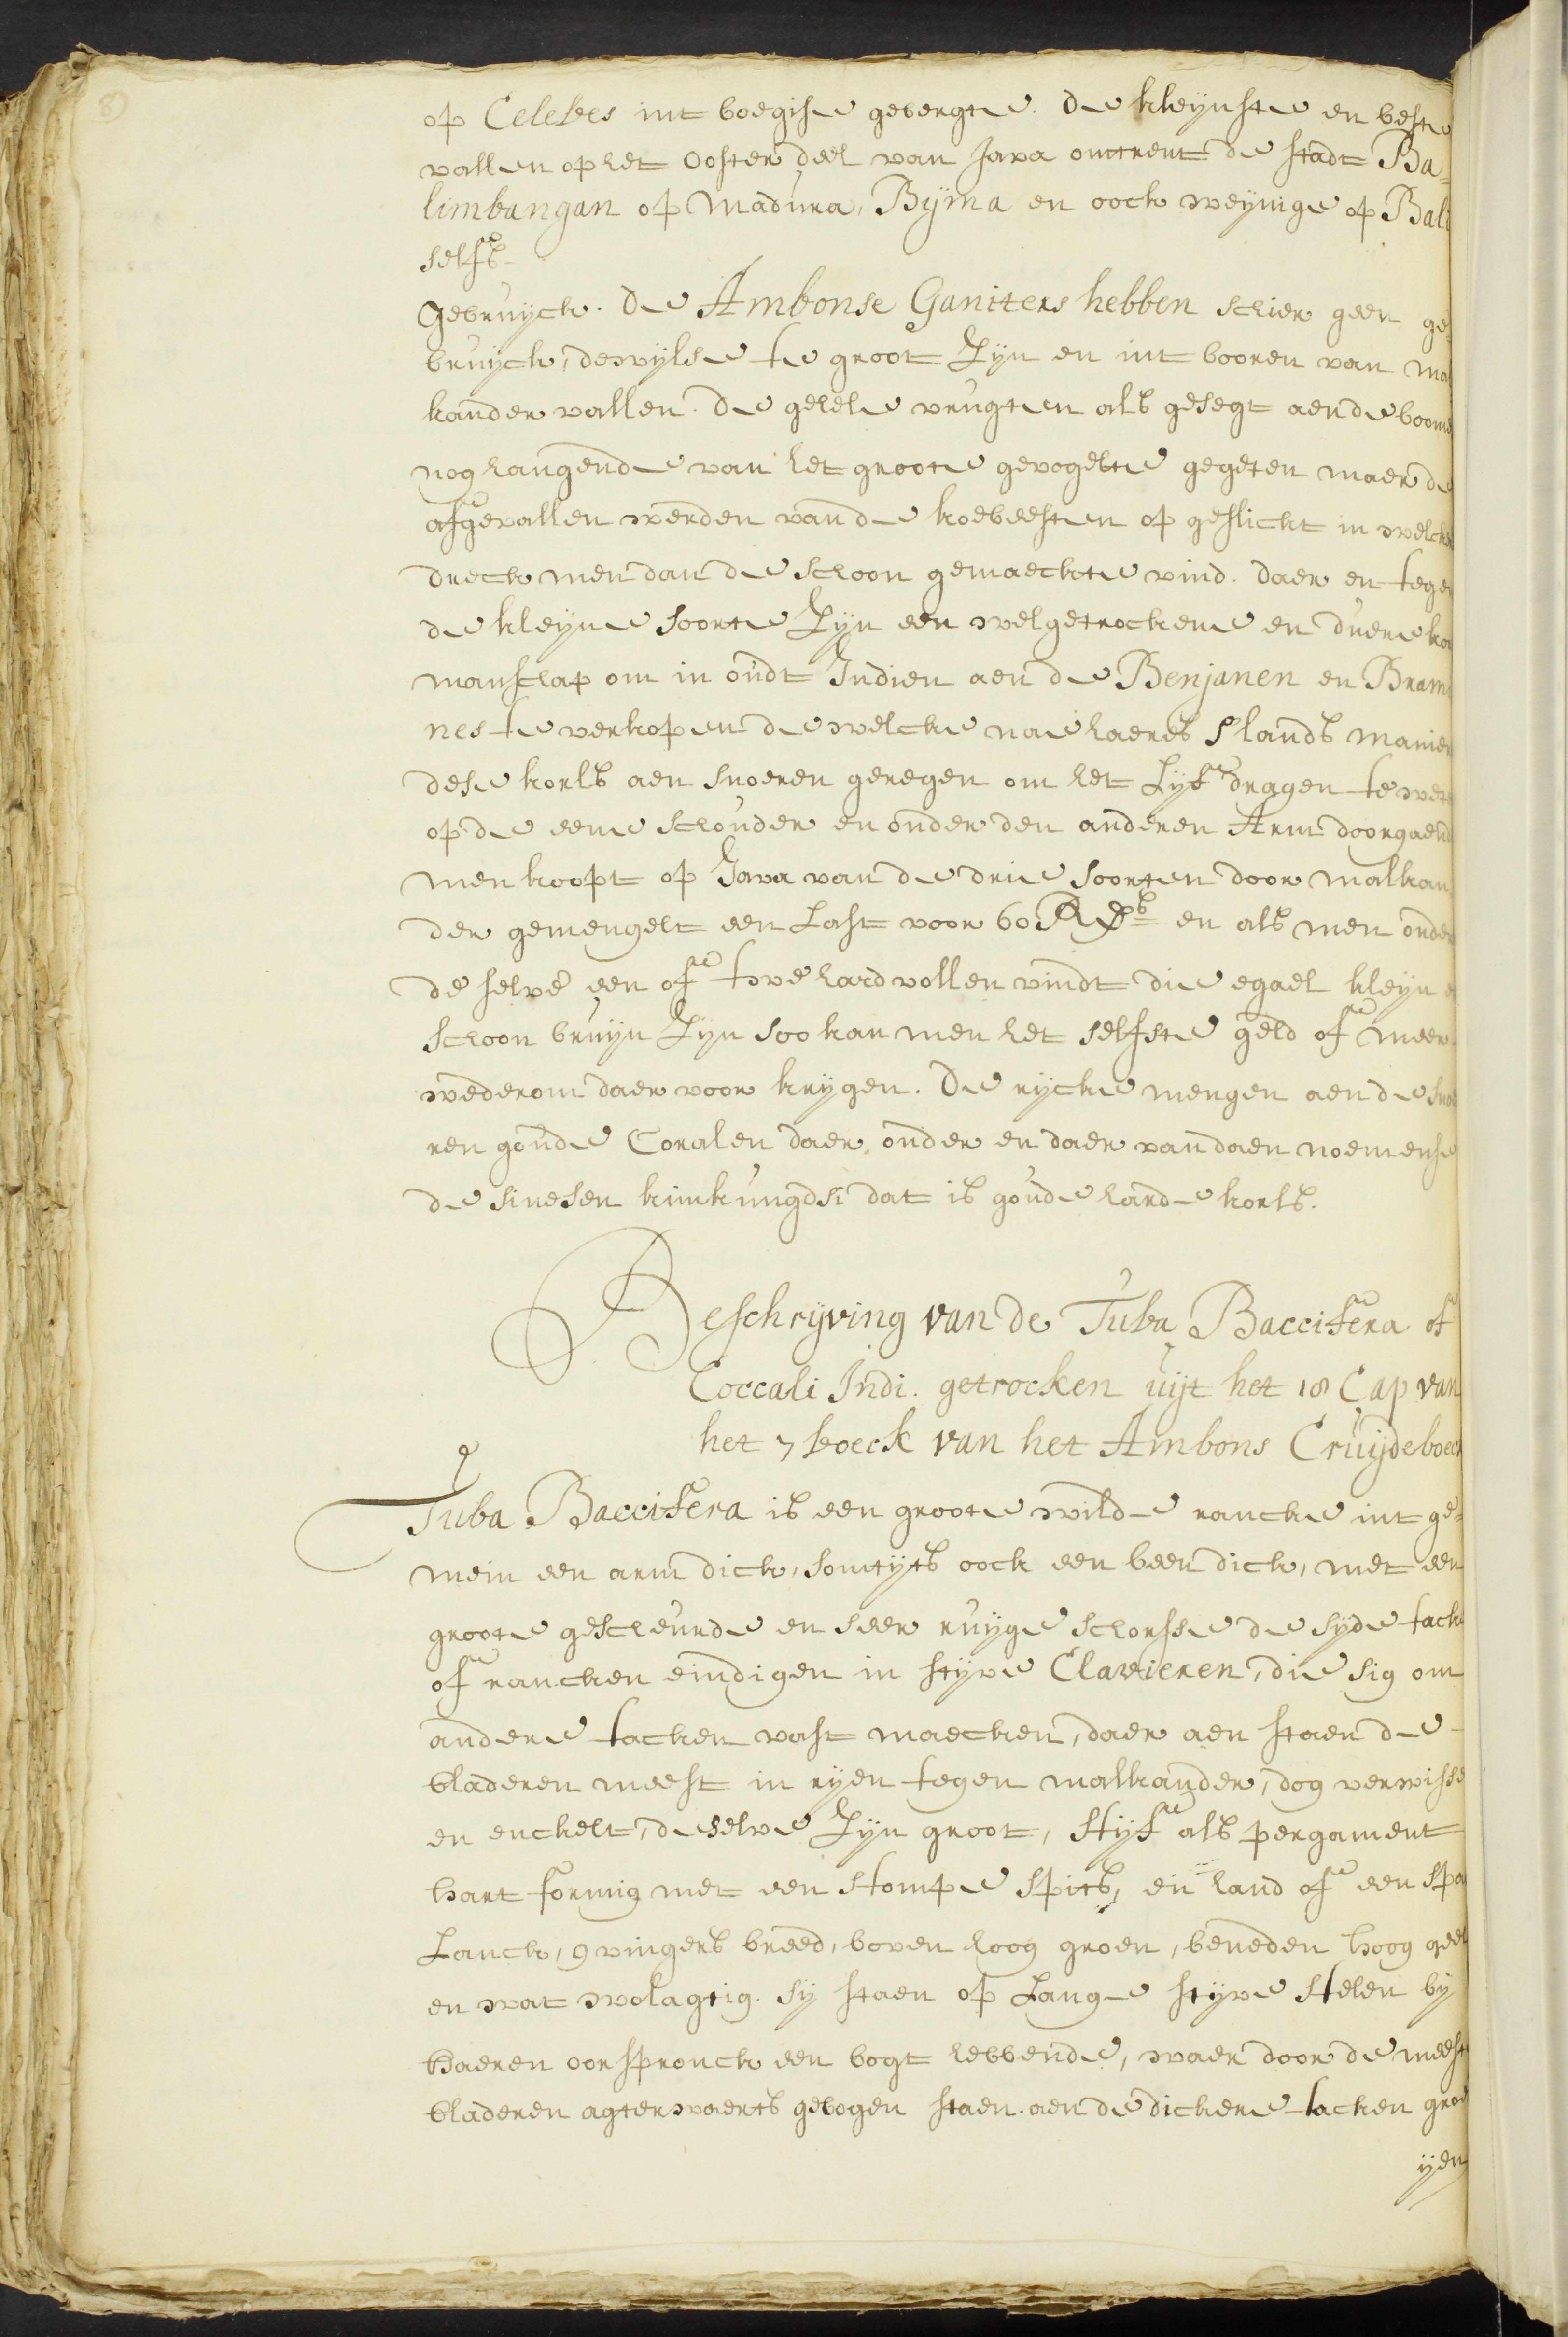 op Celebes int boegise gebergte. De kleijnste en beste
vallen op het Ooster deel van Java omtrent de stadt Ba=
limbangan op Madura, Bijma en oock weijnige op Bali
selfs
Gebruijck. De Ambonse Ganiters hebben schier geen ge
bruijck, dewijlse te groot Zijn en int booren van mal
kander vallen. de gehele vrugten als gesegt aen de boome
nog hangende van het groote gevogelte gegeten maer de
afgevallen werden van de koebeesten op geslickt in welcke
dreck men dan de schoon gemaeckte vind. daer en tegen
de kleijne soorte Zijn een welgetrockene en duere koo
manschap om in oudt Indien aen de Benjanen en Brami
nes te verkopen de welcke nae haers s'lands manier
dese korls aen snoeren geregen om het Lijf dragen te wete
op de eene schouder en onder den anderen Arm doorgaende
men koopt op Java van de drie soorten door malkan
der gemengelt een Last voor 60 Rds en als men onder
de selve een of twe hardvollen vindt die egael kleijn e
schoon bruijn Zijn soo kan men het selfste geld of meer
wederom daer voor krijgen. De rijcke mengen aen de snoe
ren goude Coralen daer onder en daer van daen noemense
de sinesen kimkungdsi dat is goude harde korls.
Beschrijving van de Tuba Baccifera of
Coccali Indi. getrocken uijt het 18 Cap van
het 7 boeck van het Ambons Cruijdeboeck
Tuba Baccifera is een groote wilde rancke int ge=
mein een arm dick, somtijts oock een been dick, met een
groote gescheurde en seer ruijge schorsse de sijde tack
of rancken eindigen in stijve Clavieren, die sig om
andere tacken vast maecken, daer aen staen de
bladeren meest in rijen tegen malkander, dog verwisse
en enckelt, deselve Zijn groot, stijf als pergament
hart formig met een stompe spits, ein hand of een spa
Lanck, 9 vingers breed, boven hoog groen, beneden hoog geel
en wat wolagtig. sij staen op Lange stijve stelen bij
haeren oorspronck een bogt hebbende, waer door de meest
bladeren agterwaerts gebogen staen. aen de dickere tacken groe
ijen